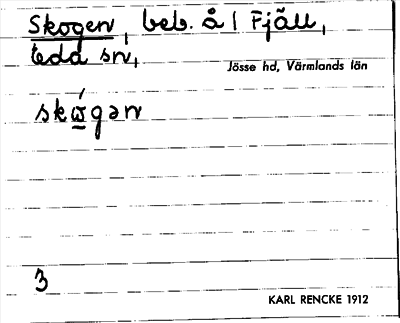 Skogen, beb. å 1 Fjäll,
Eda sn,
Jösse hd, Värmlands län
skώgən
3
KARL RENCKE 1912